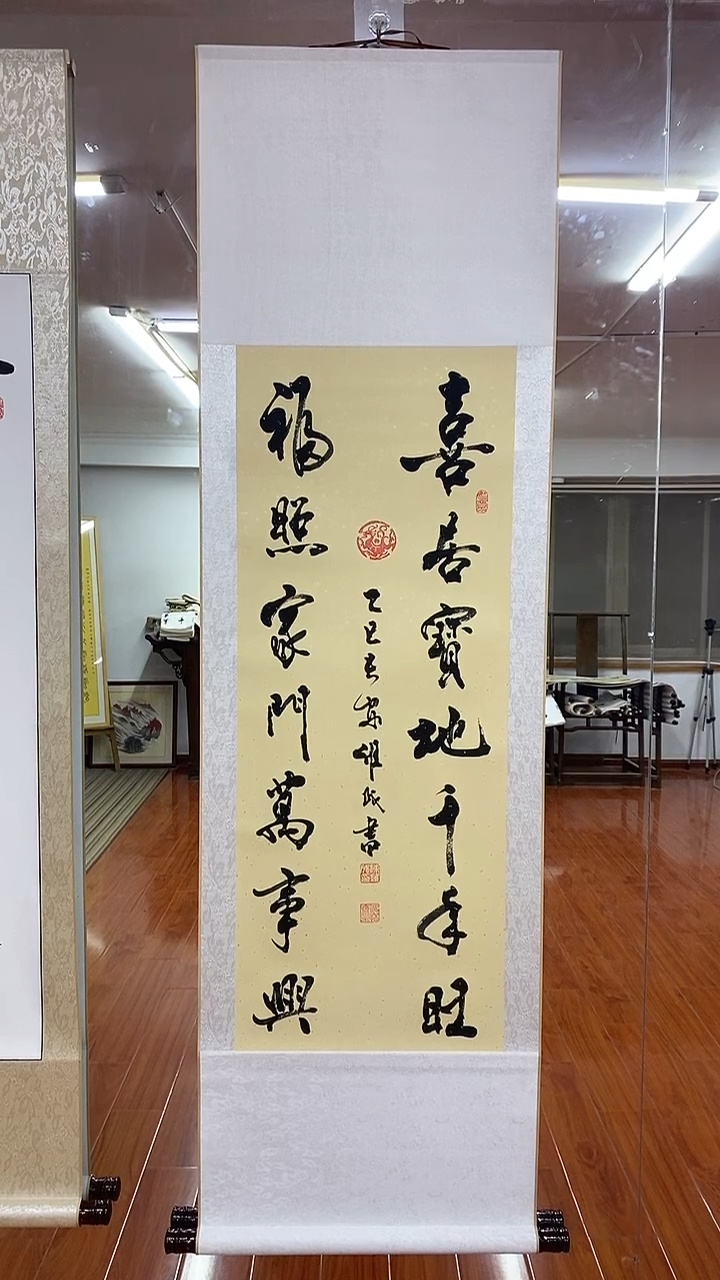 喜居寶地千年旺
福照家門萬事興
乙巳春宋維成書